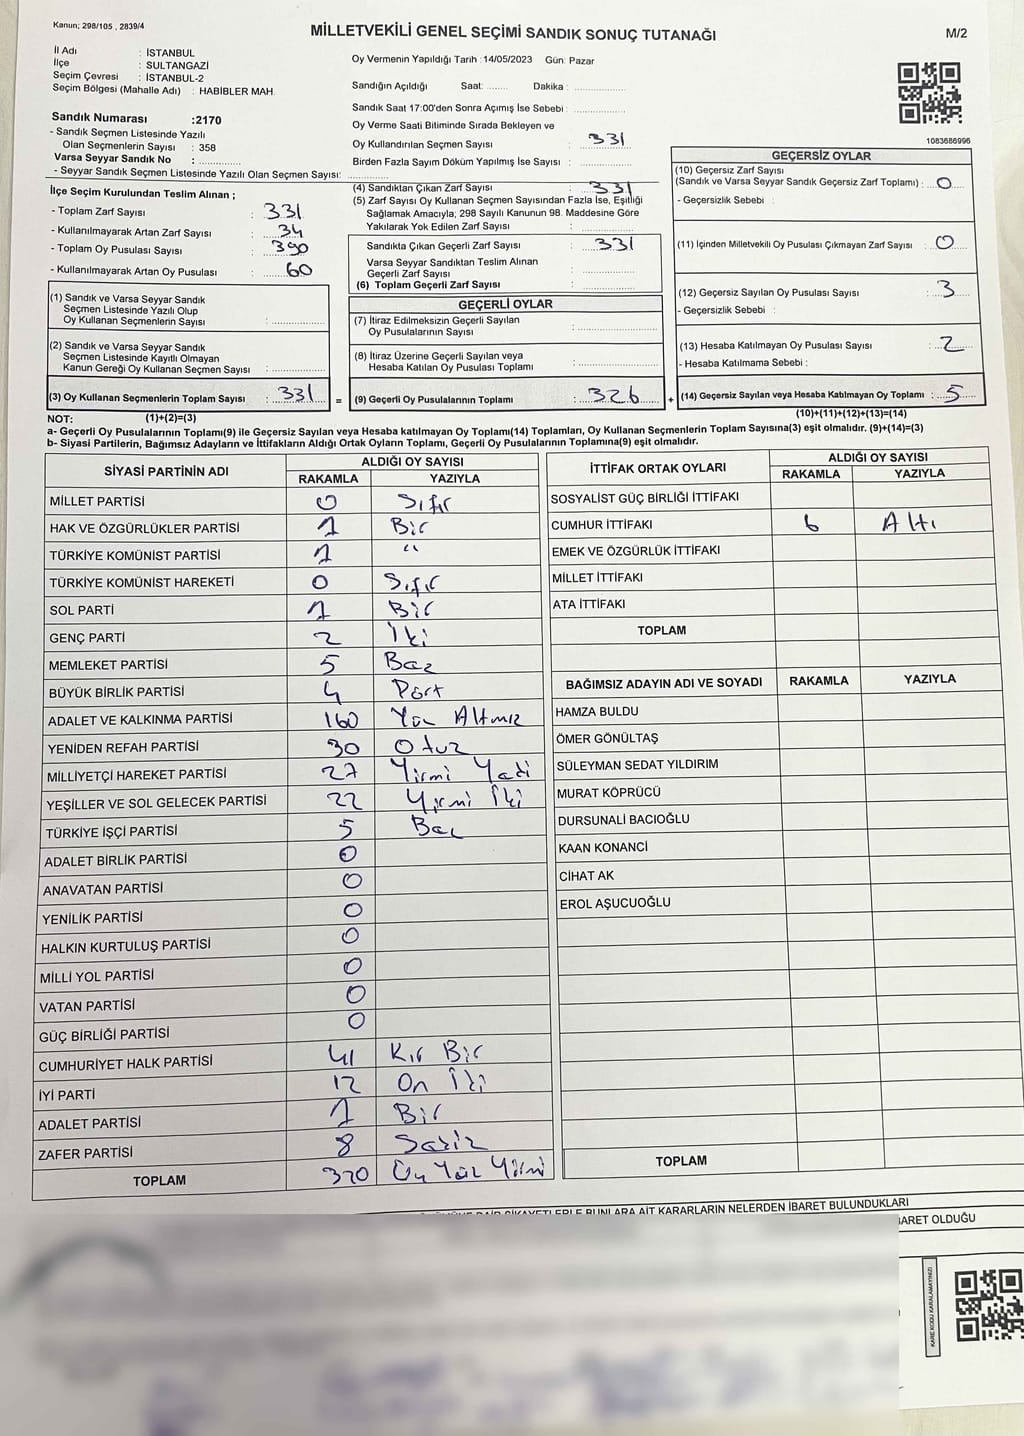 Kanun; 298/105 , 2839/4
MİLLETVEKİLİ GENEL SEÇİMİ SANDIK SONUÇ TUTANAĞI
M/2
İl Adı : İSTANBUL
İlçe : SULTANGAZİ
Seçim Çevresi : İSTANBUL-2
Seçim Bölgesi (Mahalle Adı) : HABİBLER MAH.
Sandık Numarası :2170
- Sandık Seçmen Listesinde Yazılı
Olan Seçmenlerin Sayısı : 358
Varsa Seyyar Sandık No :
- Seyyar Sandık Seçmen Listesinde Yazılı Olan Seçmen Sayısı:
Oy Vermenin Yapıldığı Tarih :14/05/2023 Gün: Pazar
Sandığın Açıldığı Saat: Dakika :
Sandık Saat 17:00'den Sonra Açımış İse Sebebi :
Oy Verme Saati Bitiminde Sırada Bekleyen ve
Oy Kullandırılan Seçmen Sayısı : 331
Birden Fazla Sayım Döküm Yapılmış İse Sayısı :
1083686996
İlçe Seçim Kurulundan Teslim Alınan ;
- Toplam Zarf Sayısı : 331
- Kullanılmayarak Artan Zarf Sayısı : 34
- Toplam Oy Pusulası Sayısı : 390
- Kullanılmayarak Artan Oy Pusulası : 60
(1) Sandık ve Varsa Seyyar Sandık
Seçmen Listesinde Yazılı Olup
Oy Kullanan Seçmenlerin Sayısı :
(2) Sandık ve Varsa Seyyar Sandık
Seçmen Listesinde Kayıtlı Olmayan
Kanun Gereği Oy Kullanan Seçmen Sayısı :
(3) Oy Kullanan Seçmenlerin Toplam Sayısı : 331 =
(4) Sandıktan Çıkan Zarf Sayısı : 331
(5) Zarf Sayısı Oy Kullanan Seçmen Sayısından Fazla İse, Eşitliği
Sağlamak Amacıyla; 298 Sayılı Kanunun 98. Maddesine Göre
Yakılarak Yok Edilen Zarf Sayısı :
Sandıkta Çıkan Geçerli Zarf Sayısı : 331
Varsa Seyyar Sandıktan Teslim Alınan
Geçerli Zarf Sayısı :
(6) Toplam Geçerli Zarf Sayısı :
GEÇERLİ OYLAR
(7) İtiraz Edilmeksizin Geçerli Sayılan
Oy Pusulalarının Sayısı :
(8) İtiraz Üzerine Geçerli Sayılan veya
Hesaba Katılan Oy Pusulası Toplamı :
(9) Geçerli Oy Pusulalarının Toplamı : 326 +
GEÇERSİZ OYLAR
(10) Geçersiz Zarf Sayısı
(Sandık ve Varsa Seyyar Sandık Geçersiz Zarf Toplamı) : 0
- Geçersizlik Sebebi :
(11) İçinden Milletvekili Oy Pusulası Çıkmayan Zarf Sayısı : 0
(12) Geçersiz Sayılan Oy Pusulası Sayısı : 3
- Geçersizlik Sebebi :
(13) Hesaba Katılmayan Oy Pusulası Sayısı : 2
- Hesaba Katılmama Sebebi :
(14) Geçersiz Sayılan veya Hesaba Katılmayan Oy Toplamı : 5
NOT: (1)+(2)=(3) (10)+(11)+(12)+(13)=(14)
a- Geçerli Oy Pusulalarının Toplamı(9) ile Geçersiz Sayılan veya Hesaba Katılmayan Oy Toplamı(14) Toplamları, Oy Kullanan Seçmenlerin Toplam Sayısına(3) eşit olmalıdır. (9)+(14)=(3)
b- Siyasi Partilerin, Bağımsız Adayların ve İttifakların Aldığı Ortak Oyların Toplamı, Geçerli Oy Pusulalarının Toplamına(9) eşit olmalıdır.
SİYASİ PARTİNİN ADI ALDIĞI OY SAYISI
RAKAMLA YAZIYLA
MİLLET PARTİSİ 0 Sıfır
HAK VE ÖZGÜRLÜKLER PARTİSİ 1 Bir
TÜRKİYE KOMÜNİST PARTİSİ 1 "
TÜRKİYE KOMÜNİST HAREKETİ 0 Sıfır
SOL PARTİ 1 Bir
GENÇ PARTİ 2 İki
MEMLEKET PARTİSİ 5 Beş
BÜYÜK BİRLİK PARTİSİ 4 Dört
ADALET VE KALKINMA PARTİSİ 160 Yüz Altmış
YENİDEN REFAH PARTİSİ 30 Otuz
MİLLİYETÇİ HAREKET PARTİSİ 27 Yirmi Yedi
YEŞİLLER VE SOL GELECEK PARTİSİ 22 Yirmi İki
TÜRKİYE İŞÇİ PARTİSİ 5 Beş
ADALET BİRLİK PARTİSİ 0
ANAVATAN PARTİSİ 0
YENİLİK PARTİSİ 0
HALKIN KURTULUŞ PARTİSİ 0
MİLLİ YOL PARTİSİ 0
VATAN PARTİSİ 0
GÜÇ BİRLİĞİ PARTİSİ 0
CUMHURİYET HALK PARTİSİ 41 Kır Bir
İYİ PARTİ 12 On İki
ADALET PARTİSİ 1 Bir
ZAFER PARTİSİ 8 Sekiz
TOPLAM 320 Üç Yüz Yirmi
İTTİFAK ORTAK OYLARI ALDIĞI OY SAYISI
RAKAMLA YAZIYLA
SOSYALİST GÜÇ BİRLİĞİ İTTİFAKI
CUMHUR İTTİFAKI 6 Altı
EMEK VE ÖZGÜRLÜK İTTİFAKI
MİLLET İTTİFAKI
ATA İTTİFAKI
TOPLAM
BAĞIMSIZ ADAYIN ADI VE SOYADI RAKAMLA YAZIYLA
HAMZA BULDU
ÖMER GÖNÜLTAŞ
SÜLEYMAN SEDAT YILDIRIM
MURAT KÖPRÜCÜ
DURSUNALİ BACIOĞLU
KAAN KONANCİ
CİHAT AK
EROL AŞUCUOĞLU
TOPLAM
ŞİKAYETLERLE BUNLARA AİT KARARLARIN NELERDEN İBARET BULUNDUKLARI
BARET OLDUĞU
KARE KODU KARALAMAYINIZ!